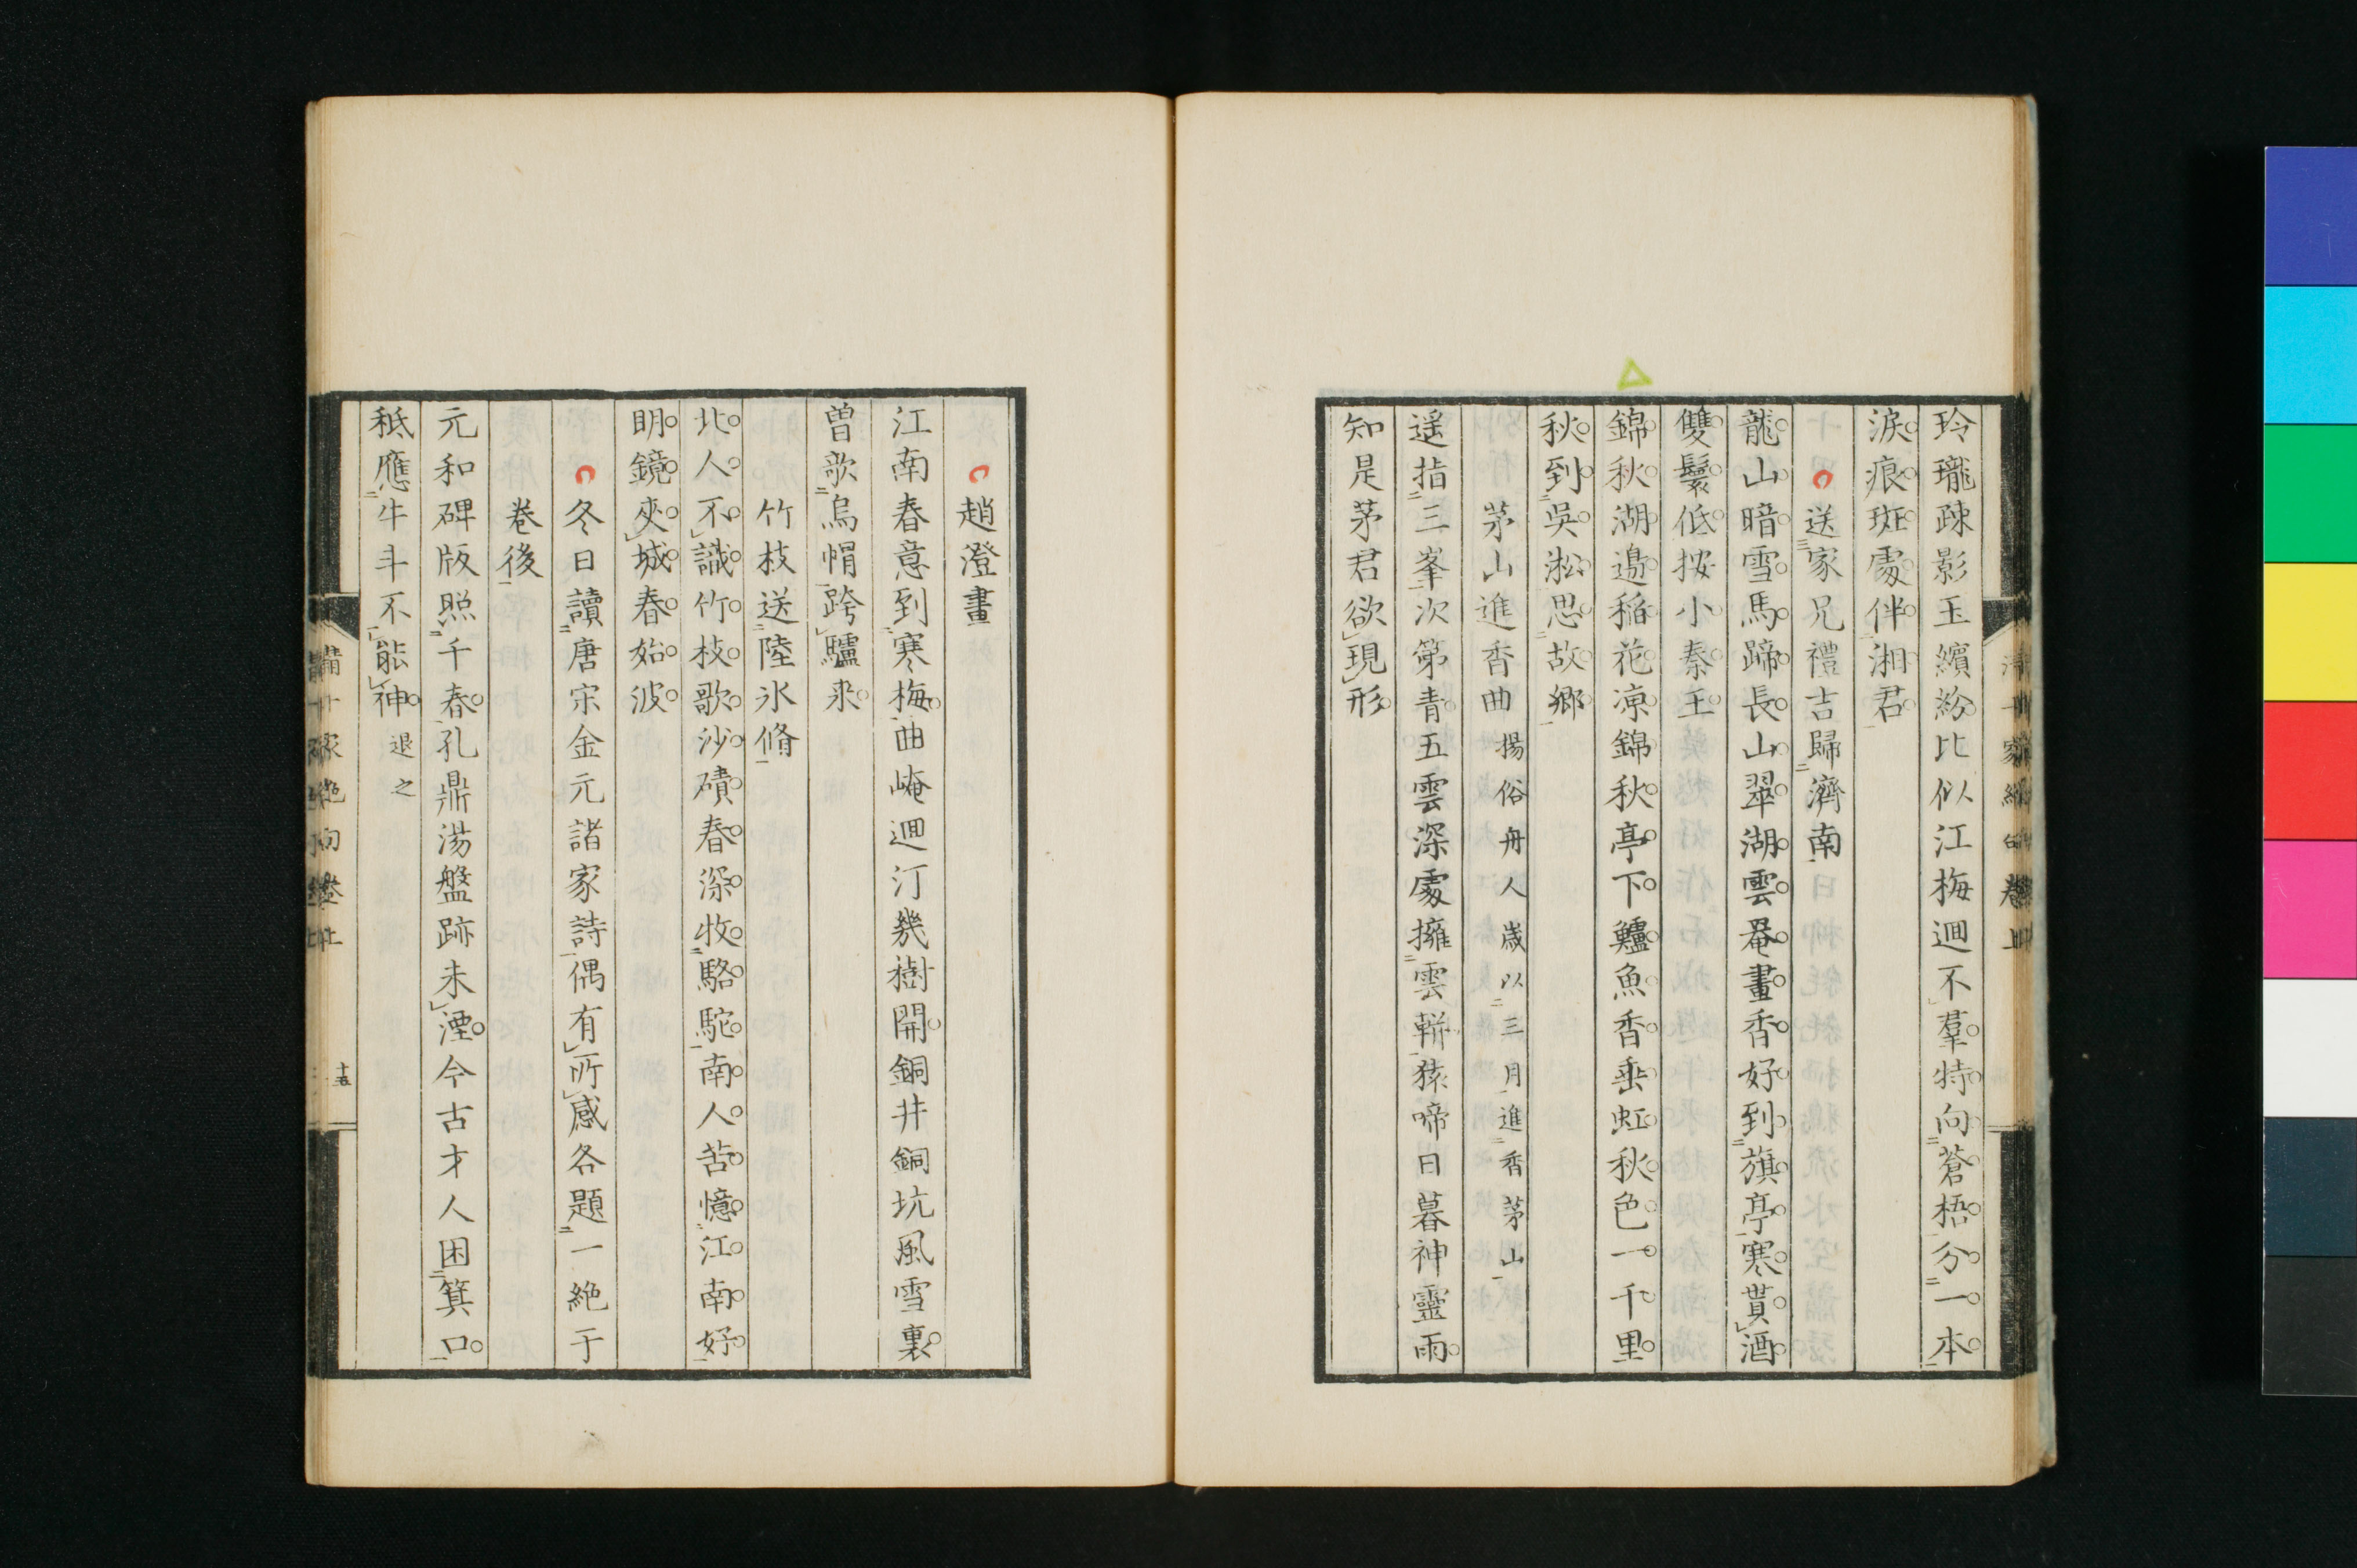 玲瓏疎影玉繽紛比似江梅迥不羣特向蒼梧分一本
淚痕斑處伴湘君
送家兄禮吉歸濟南
龍山暗雪馬蹄長山翠湖雲罨畫香好到旗亭寒貰酒
雙鬟低按小秦王
錦秋湖邉稲花凉錦秋亭下鱸魚香垂虹秋色一千里
秋到吳淞思故鄉
茅山進香曲揚俗舟人歲以三月進香茅山
遥指三峯次第青五雲深處擁雲軿猿啼日暮神靈雨
知是茅君欲現形
趙澄畫
江南春意到寒梅曲崦迴汀幾樹開銅井銅坑風雪裏
曽歌烏帽跨驢来
竹枝送陸冰脩
北人不識竹枝歌沙磧春深牧駱駝南人苦憶江南好
明鏡夾城春始波
冬日讀唐宋金元諸家詩偶有所感各題一絶于
卷後
元和碑版照千春孔鼎湯盤跡未湮今古才人困箕口
秪應牛斗不能神退之
十五